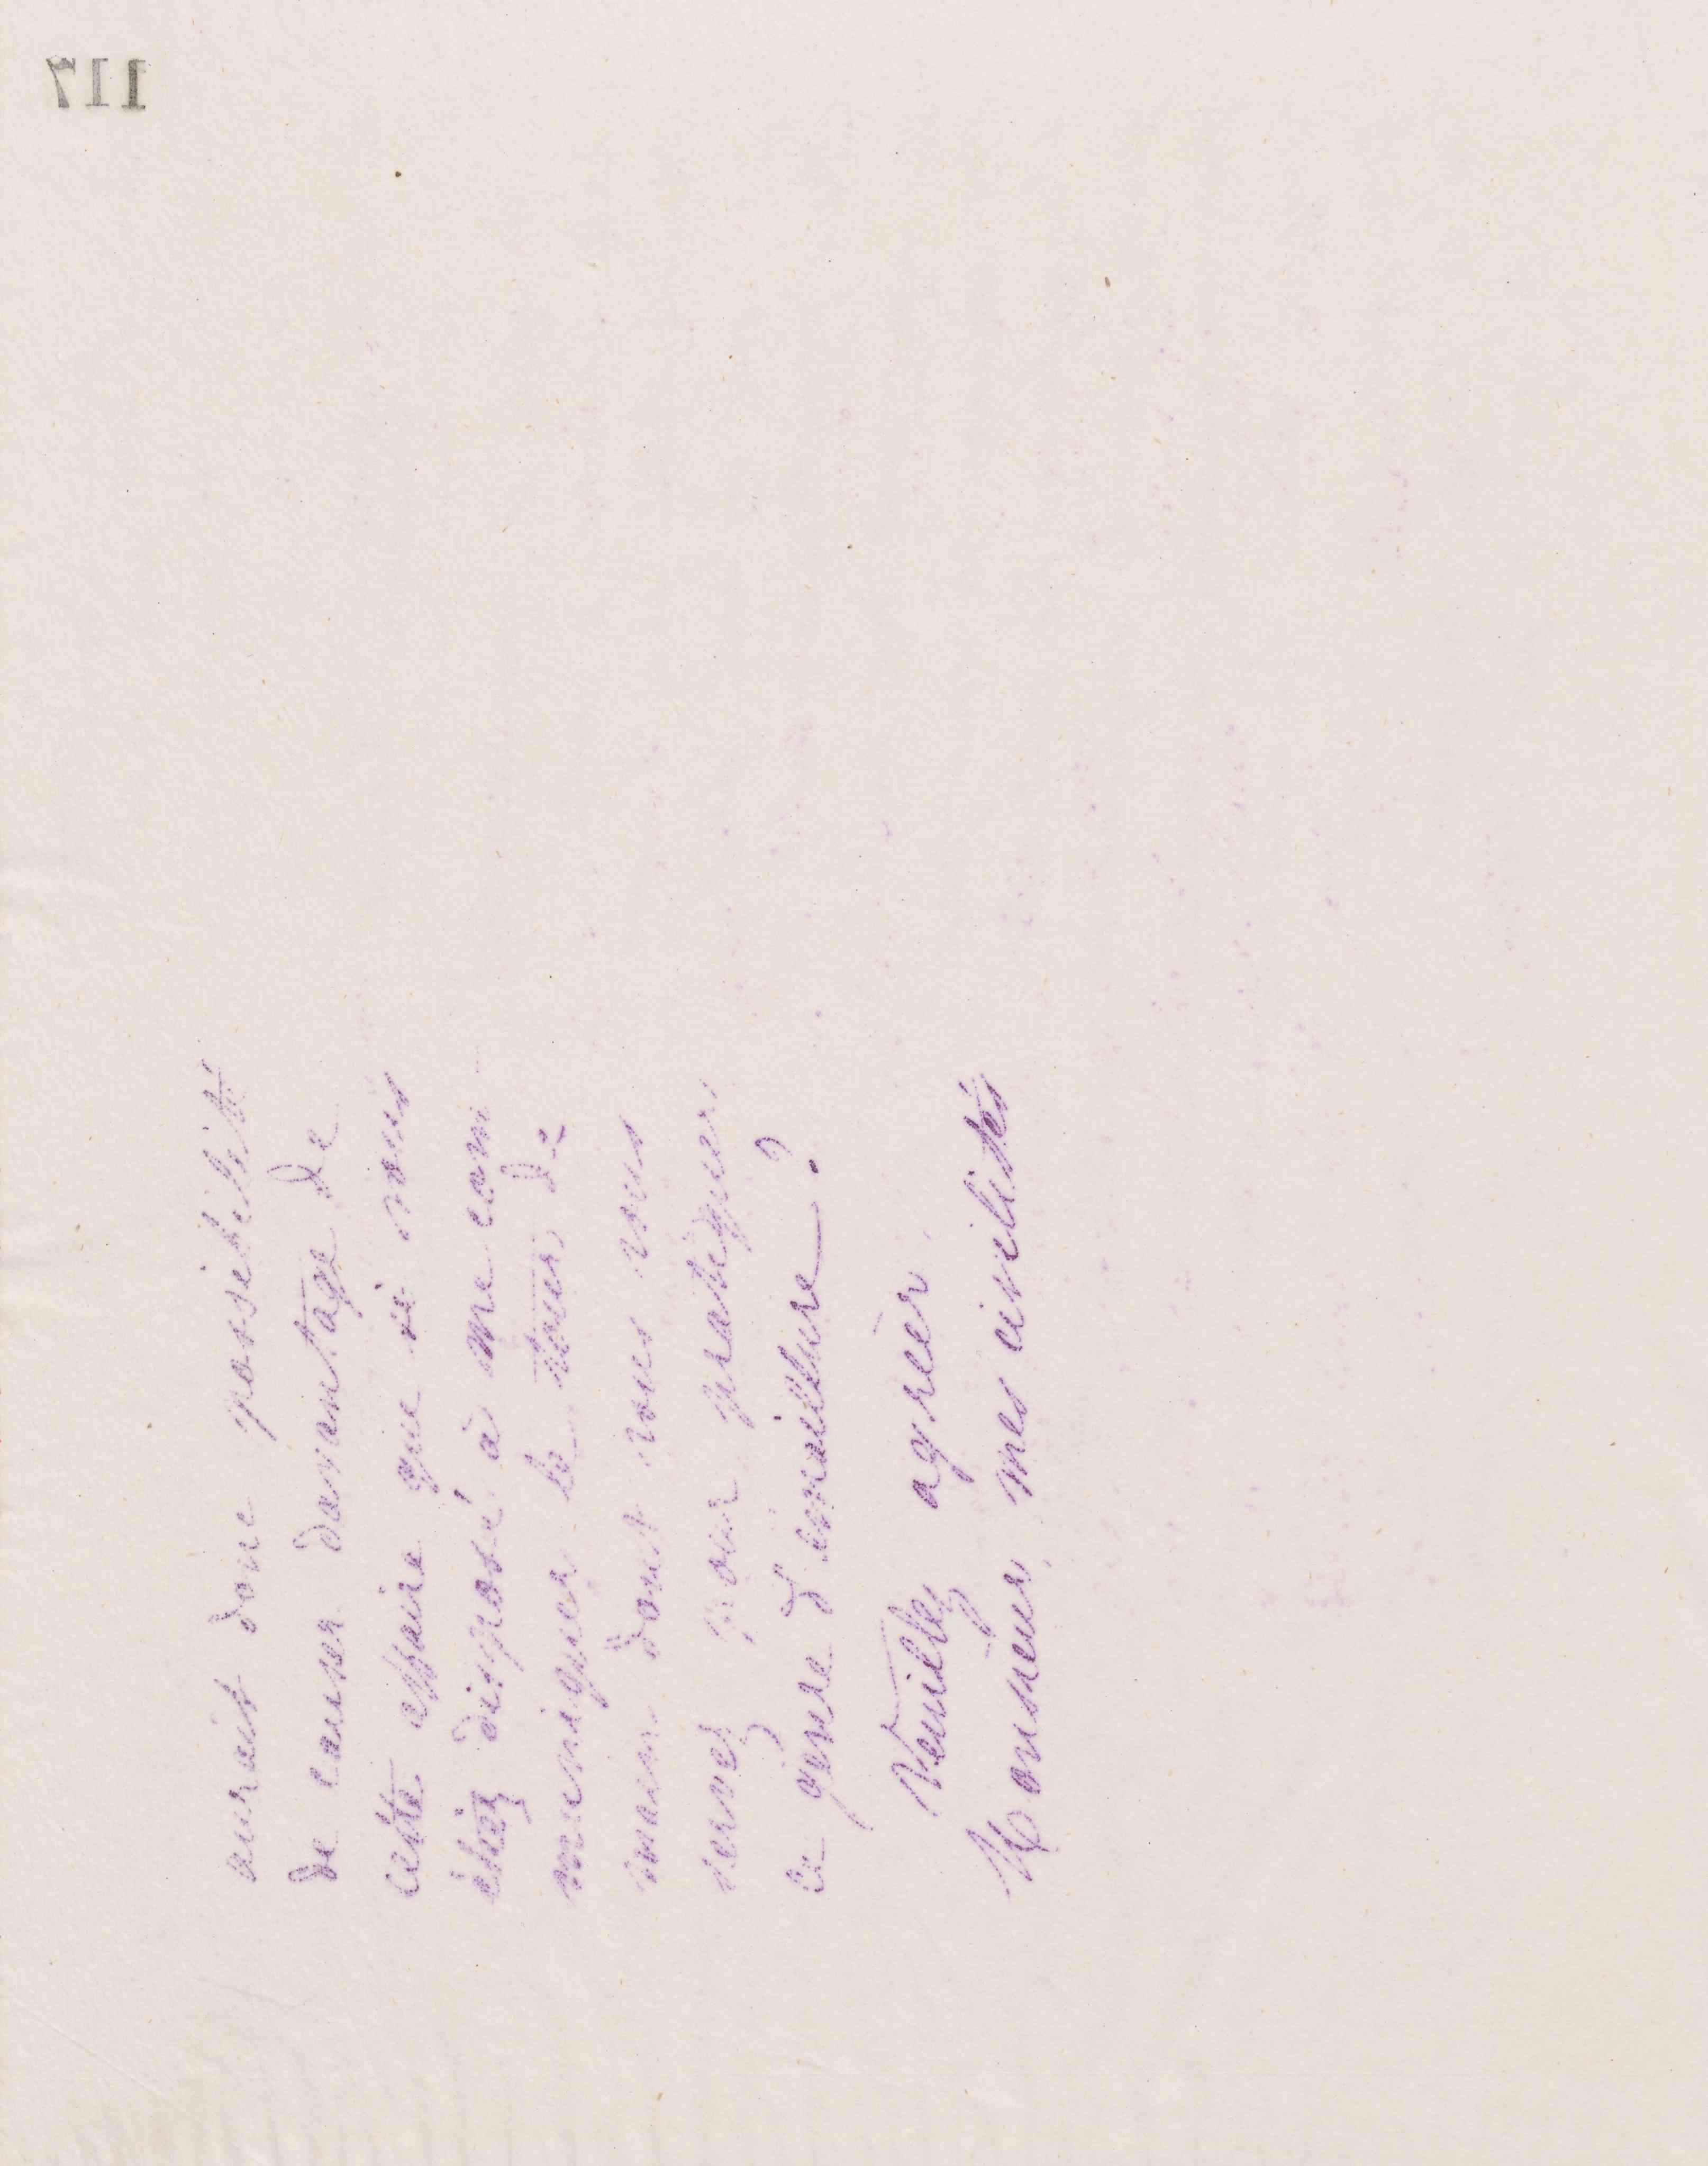 117
aurait donc possibilité
de causer davantage de
cette affaire que si vous
étiez disposé à me com
muniquer le tour de
main dont vous vous
servez pour pratiquer
ce genre d'émaillure ?
Veuillez agréer
Monsieur, mes civilités